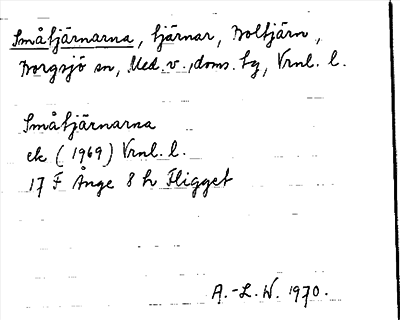 Småtjärnarna, tjärnar, Boltjärn,
Borgsjö sn, Med. v. doms. tg, Vrnl. l.
Småtjärnarna
ek (1969) Vrnl. l.
17 F Ånge 8 h Fligget
A.-L. W. 1970.